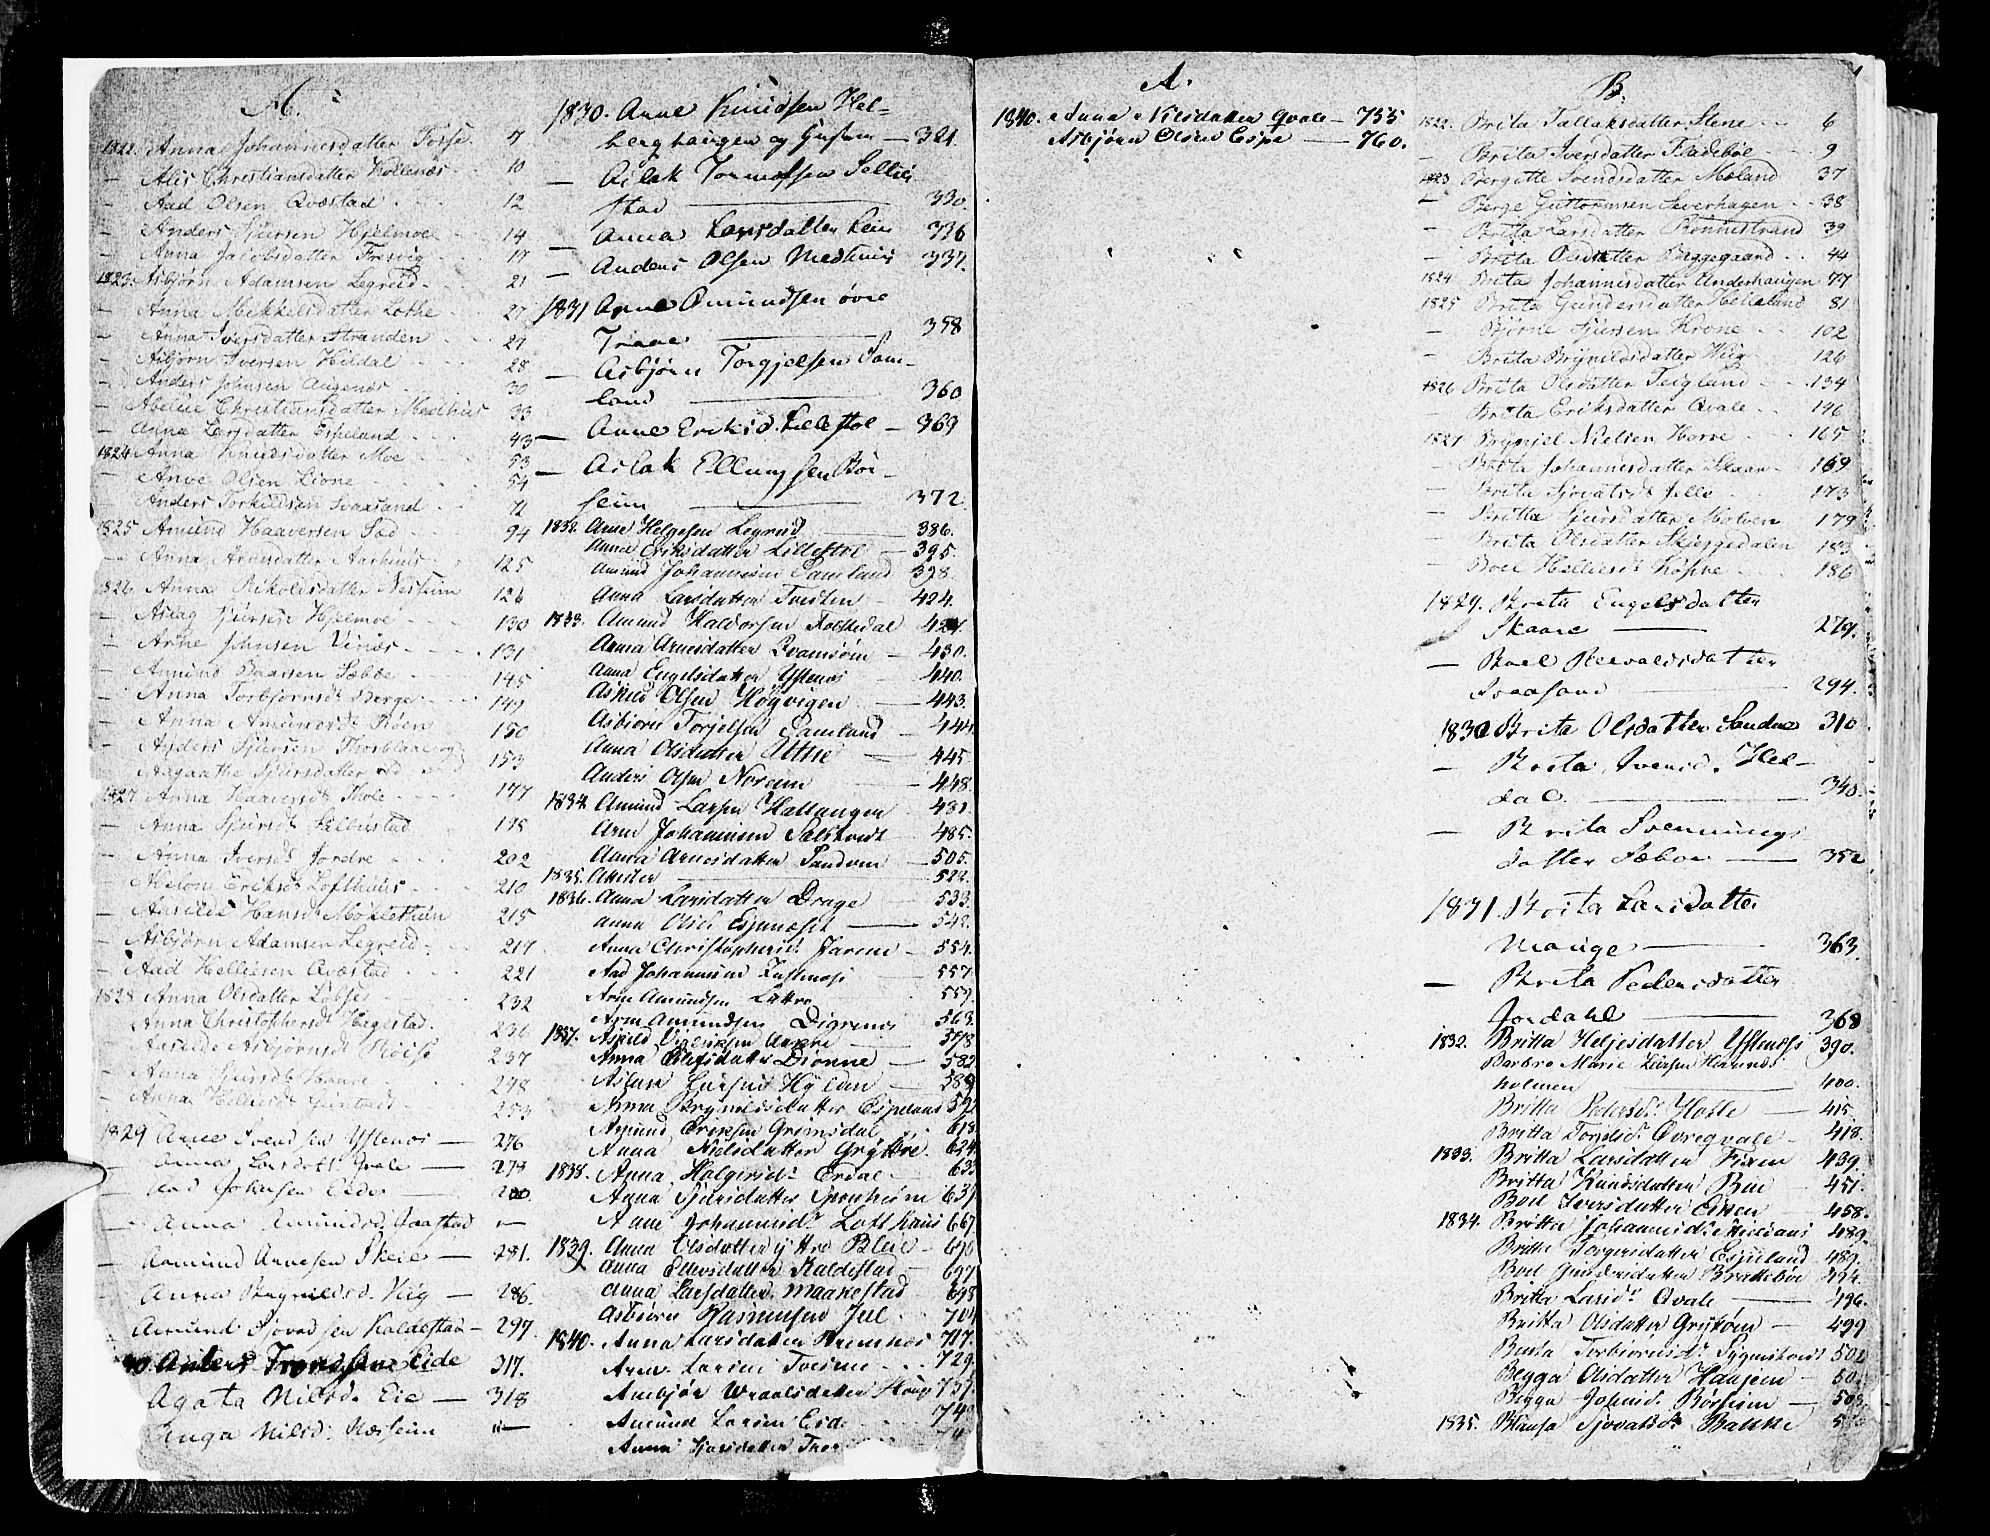 A.
1822. Anna Johannesdatter Fosse. 7
— Alis Christiansdatter Kollenæs 10
— Aad Olsen Qvæstad 12
— Anders Sjursen Hjelmoe 14
— Anna Jacobsdatter Fresvig 17
1823. Asbjørn Adamsen Legreid 21
— Anna Mikkelsdatter Lothe 27
— Anna Iversdatter Stranden 27
— Asbjørn Iversen Hildal 28
— Anders Johnsen Augenæs 30
— Abelüe Christiansdatter Medhuus 33
— Anna Larsdatter Espeland 43
1824 Anna Knudsdatter Moe 53
— Anve Olsen Lione 54
— Anders Torkildsen Svaasand 71
1825 Amund Haaversen Sæd 94
— Anna Arnesdatter Aarhuus 125
1826 Anna Nikolisdatter Nestun 126
— Aslag Sjursen Hjelmoe 130
— Arne Johnsen Vinæs 131
— Amund Baarsen Sæbøe 145
— Anna Torbjørnsdr Berge 149
— Anna Amundsdr Røen 150
— Anders Sjursen Thorblaa 153
— Aagaathe Sjursdatter
1827 Anna Haaversdr Thole 177
— Anna Sjursdr Sælbustad 198
— Anna Iversdr Jordre 202
— Abelone Eriksdr Lofthuus 210
— Aasilde Hansdr Møkletuün 215
— Asbjørn Adamsen Legreid 217
— Aad Helliesen Qvæstad 221
1828 Anna Olsdatter Løbse 232
Anna Christophersdr Hagestad. 236
— Aasilde Asbjørnsdr Røise 237
— Anna Sjursdr Haare 248
— Anna Helliesdr Jaastad 253
1829 Arne Svendsen Ystenæs — 276
— Anna Larsdatt: Qvale — 279
— Aad Johnsen Eide — 280.
— Anna Amundsd. Jaastad "—
Asmund Arnesen Skeie — 281.
Anna Brynildsd. Vig — 286.
Asmund Sjovadsen Kaldestad — 297.
30 Anders Tronsen Eide 317.
Agata Nilsd. Eie — 318
Anga Nilsd: Næsheim "—
1830. Arne Knudsen Hel-
berghaugen og — 321.
— Aslak Tormodsen Sellei
stad — 330
— Anna Larsdatter Lein 336
— Anders Olsen Medhuus 337.
1831 Arne Omundsen øvre
Traae — 358
— Asbjørn Torgjelsen Sam-
land — 360
— Anne Eriksd. Lillestøl — 369
— Aslak Ellingsen Bør-
seim — 372.
1832. Arne Helgesen Legreid — 386.
Anna Eriksdatter Lillestøl — 395.
Amund Johannesen Samland 398.
Anna Larsdatter Tveiten — 424.
1833. Amund Haldorsen Kolltvedal 427.
Anna Arnesdatter Qvamsøin — 430.
Anna Engelsdatter Ystenæs — 440.
Askild Olsen Høyvigen — 443.
Asbiørn Torjelsen Samland — 444.
Anna Olsdatter Utne — 445
Anders Olsen Noreim — 448.
1834. Amund Larsen Haltangen — 481.
Arne Johannesen Sælstvedt — 485.
Anna Arnesdatter Sandven — 505.
1835. Attester — 522.
1836. Anna Larsdatter Drage — 533.
Anna Olsd. Espenæset — 542.
Anna Christophersdr. Jarene — 554.
Aad Johannesen Instenæs — 557.
Arne Amundsen Lothe — 559.
Arne Amundsen Digrenes 563.
1837. Askild Aakre — 578
Anna Olafsdatter Dionne — 582
Aslak Larsen Hyldan — 589
Anna Brynildsdatter Espeland 59
Asmund Eriksen Grimsdal 618.
Anna Nielsdatter Gryttre. 624
1838. Anna Holgersdr. Erdal — 63
Anna Sjursdatter Sponheim 637
Anne Johannesdr. Lofthuus 667
1839. Anna Olsdatter ytre Bleie — 696
Anna Ellevsdatter Kaldestad — 697
Anna Larsdatter Maakestad 698
Asbiørn Rasmussen Jul — 704
1840. Anna Larsdatter Hremnæs 717.
Arne Larsen Tveisme 729.
Ambjør Wraalsdatter Houg 737.
Amund Larsen Eide 74
Anna Sjursdatter Tror
A.
1840. Anna Nilsdatter Qvale — 755
Asbjørn Olsen Espe — 760.
B.
1822. Brita Tallaksdatter Stene 6
— Brita Iversdatter Fladebøe 9
1823 Bergitte Svendsdatter Mæland 37
— Berge Guttormsen Severhagen 38
— Brita Larsdatter Rønnestrand 39
— Brita Olsdatter Buggegaard 44
1824 Brita Johannisdatter Underhaugen 77
1825 Brita Gundersdatter Helleland 81
— Bjørne Sjursen Krone 102
— Brita Brynildsdatter Wiig 126
1826 Brita Olsdatter Teigland 134
— Brita Eriksdatter Qvale 146
1827 Brynjel Nielsen Horre 165
— Brita Johannisdatter Skaar 169
— Brita Sjovatsdr Jelle 173
— Britta Sjursdatter Molven 179
— Brita Olsdatter Skjeggedalen 183
— Boel Helliesdr Løfsne 186
1829. Brita Engelsdatter
Skaare — 279.
— Boel Seevaldsdatter
Svaasand — 294.
1830 Brita Olsdatter Sandnæ 310
— Brita Iversd. Hel-
dal. — 340.
— Brita Svennings
datter Sæbøe — 352
1831. Brita Larsdatter
Mauge — 363.
— Brita Pedersdatter
Jordahl — 368
1832. Britta Heljesdatter Ystenæs 390.
Barbro Marie Larsen Hamnds
holmen — 400.
Britta Pedersdr Hotle — 415.
Britta Torjelsdr. Øvreqvale — 418.
1833. Britta Larsdatter Fixen — 439.
Britta Knudsdatter Bue — 451.
Boel Iversdatter Eissen — 458.
1834. Britta Johannesdr 489.
Britta Torgersdatter Espeland 489.
Boel Gundersdatter Brattebøe 494.
Britta Larsdr. Qvale — 496.
Britta Olsdatter Grytøin — 499
Brita Torbiørnsdr Sygnestveit 501
Begga Olsdatter Haugsen — 50
Begga Johnsd. Børseim — 503
1835. Sjovatsdr Bakke 5